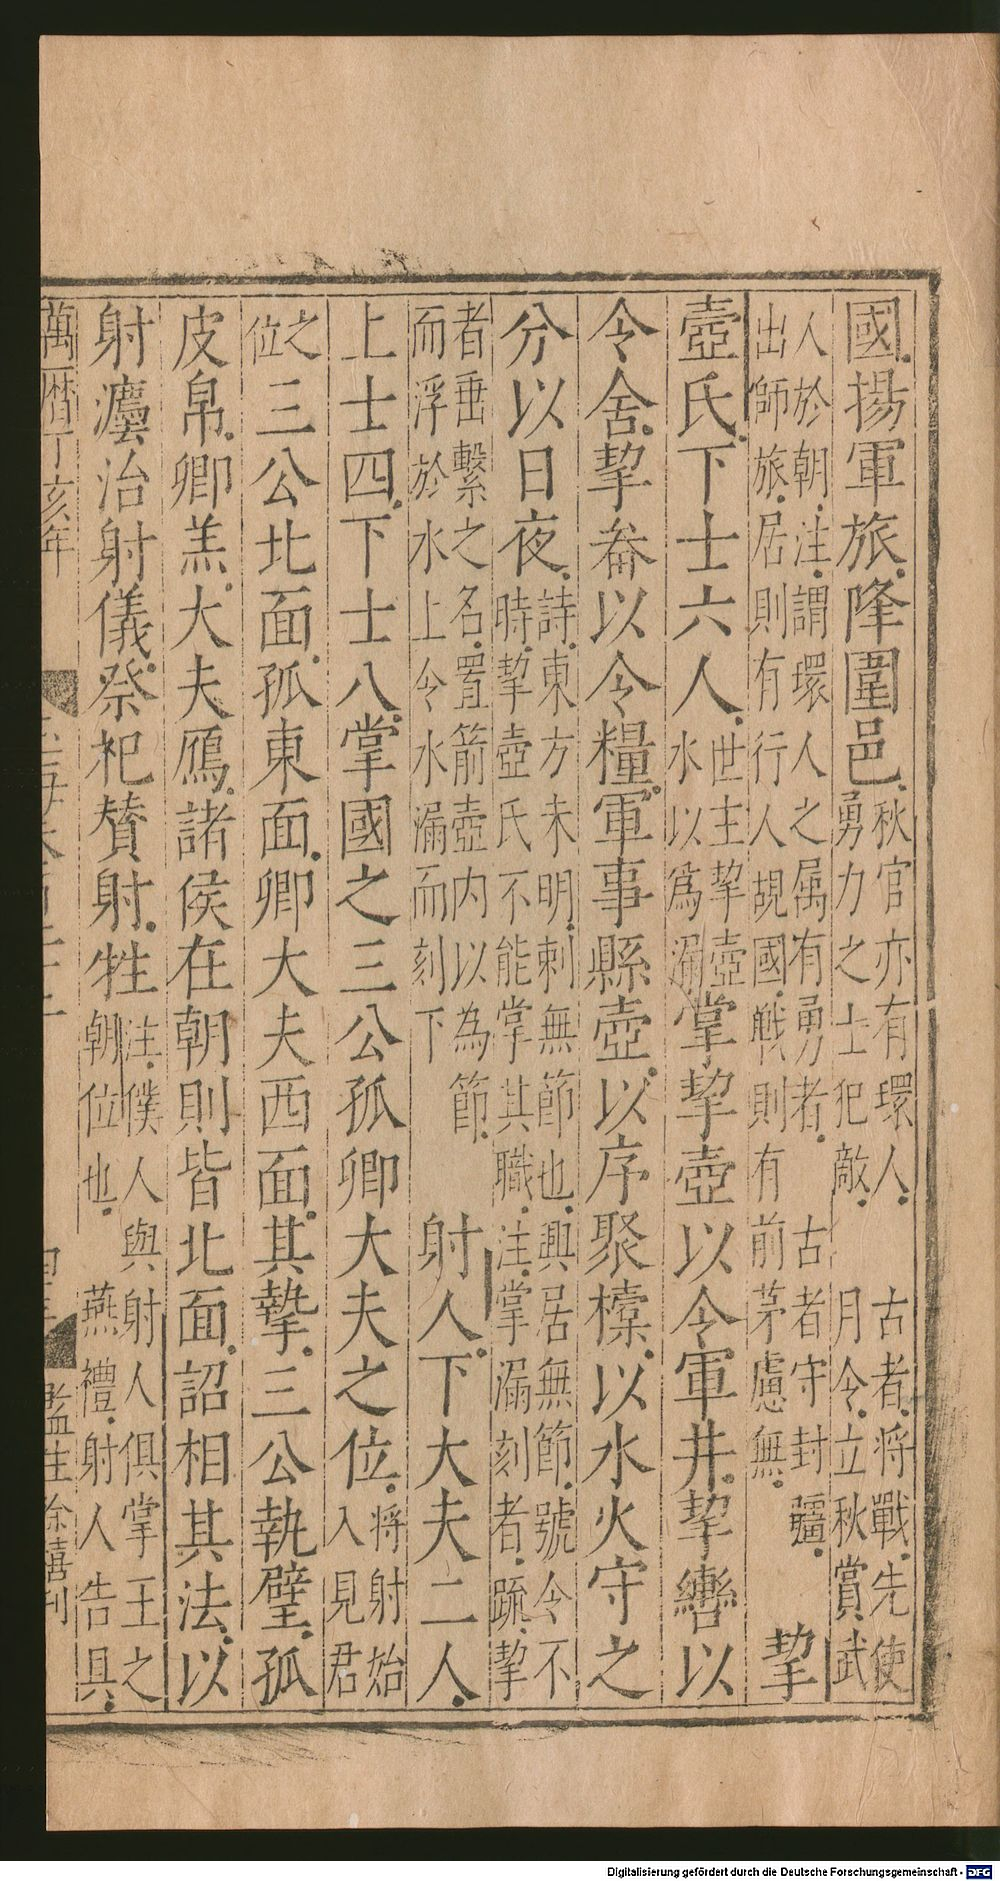 國揚軍旅降圍邑秋官亦有環人勇力之士犯敵古者將戰先使月令立秋賞武
人於朝注謂環人之属有勇者出師旅居則有行人覘國戰則有前茅慮無古者守封疆挈
壺氏下士六人世主挈壺水以爲漏掌挈壺以令軍井挈轡以
令舍挈畚以令糧軍事縣壺以序聚㯓以水火守之
分以日夜詩東方未明刺無節也興居無節號令不時挈壺氏不能掌其職注掌漏刻者疏挈
者垂繫之名置箭壺内以為節而浮於水上令水漏而刻下射人下大夫二人
上士四下士八掌國之三公孤卿大夫之位將射始入見君
之位三公北面孤東面卿大夫西面其摯三公執璧孤
皮帛卿羔大夫鴈諸侯在朝則皆北面詔相其法以
射灋治射儀祭祀賛射牲注僕人與射人俱掌王之朝位也燕禮射人告具
萬曆丁亥年
監生徐禧刊
Digitalisierung gefördert durch die Deutsche Forschungsgemeinschaft - DFG